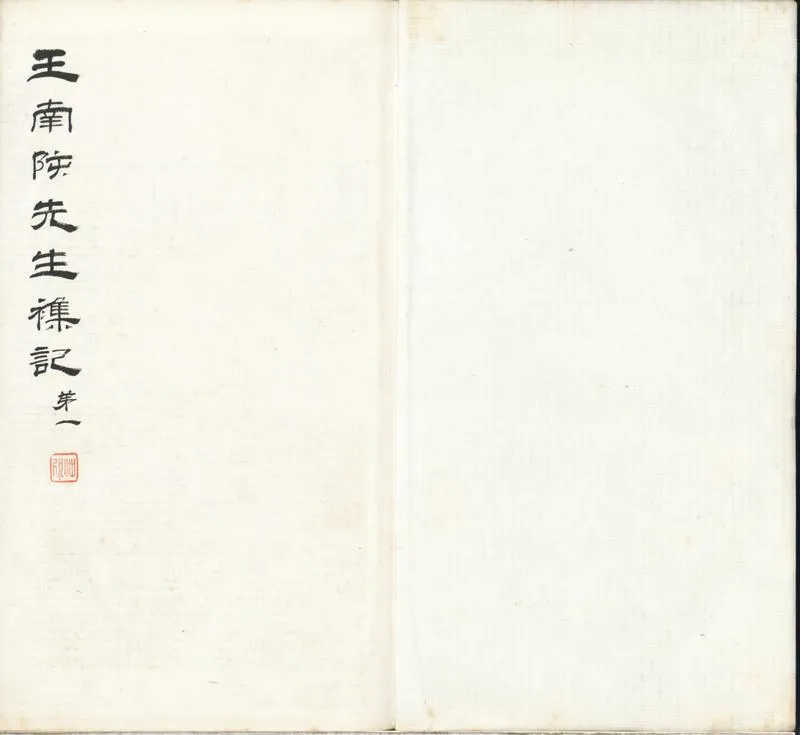 王南陔先生襍記 第一